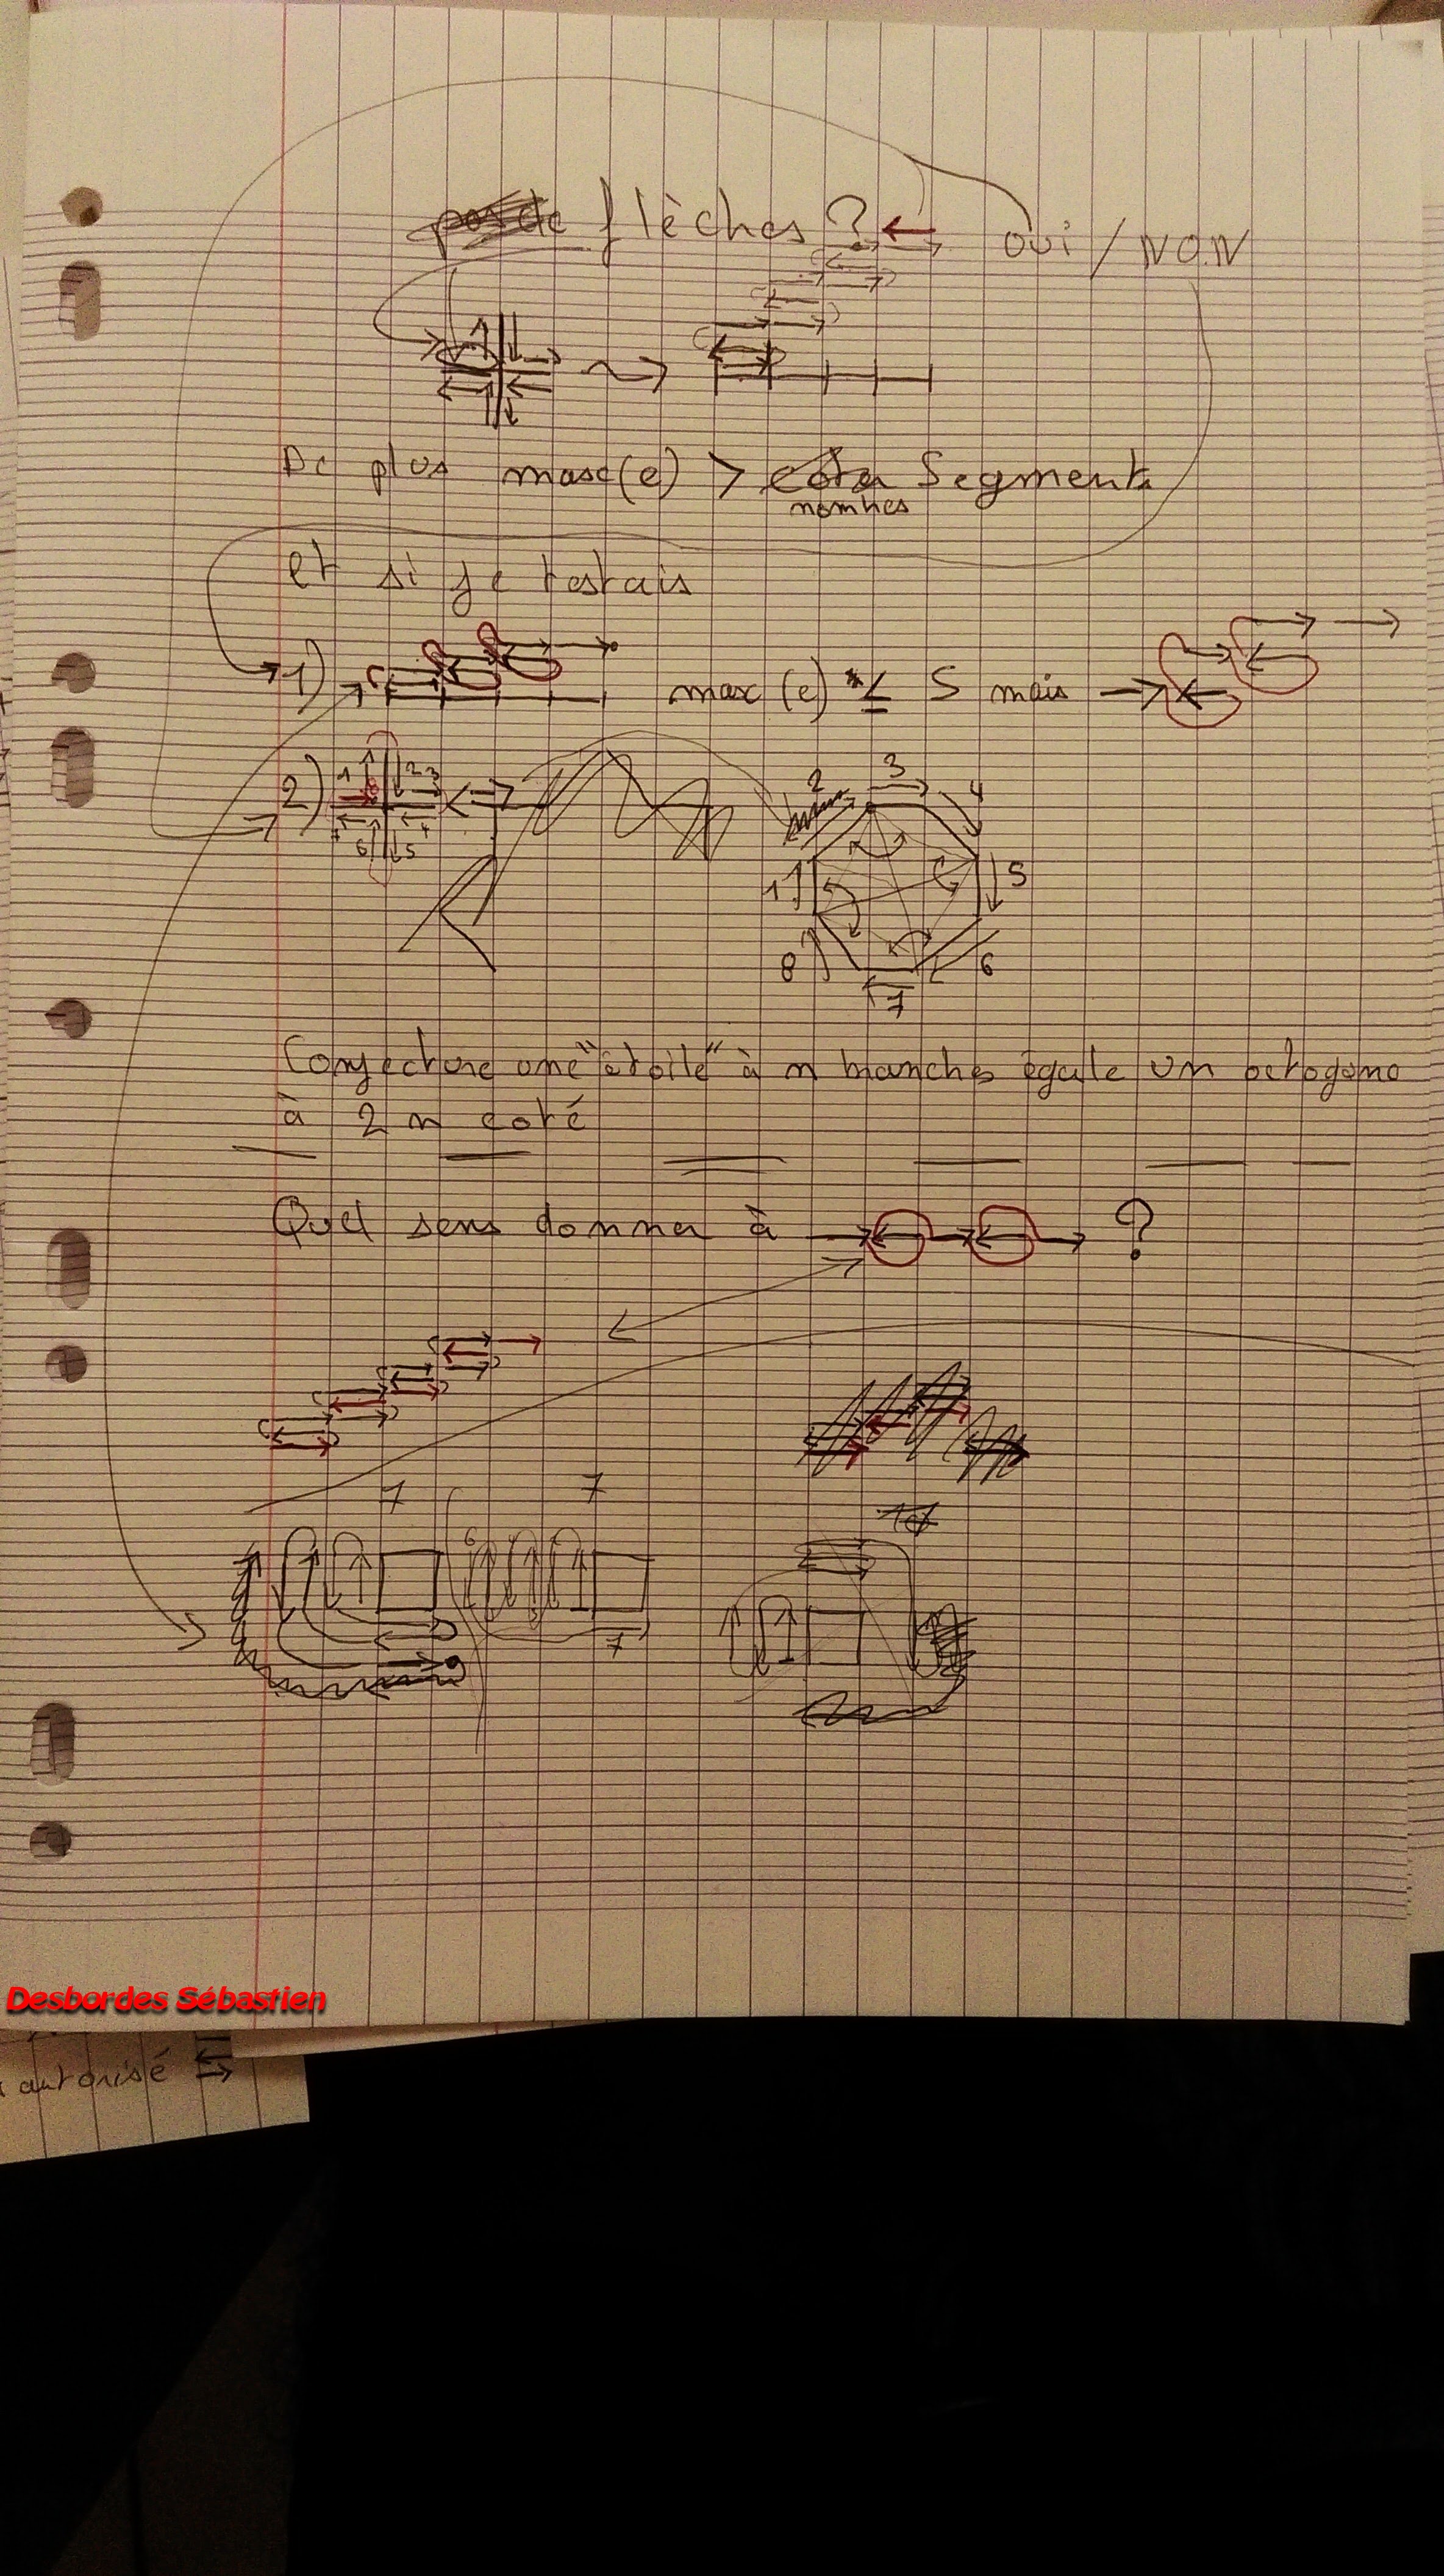 flèches ? oui / NON
De plus max(e) > Segments
nombres
et si je testais
1) max (e) ≤ 5 mais
2) 1 2 3 4 5 6 7
1 2 3 4 5 6 7 8
Conjecture une "étoile" à n branches égale un octogone
à 2 n coté
Quel sens donner à ?
7 7
7
Desbordes Sébastien
autorisé